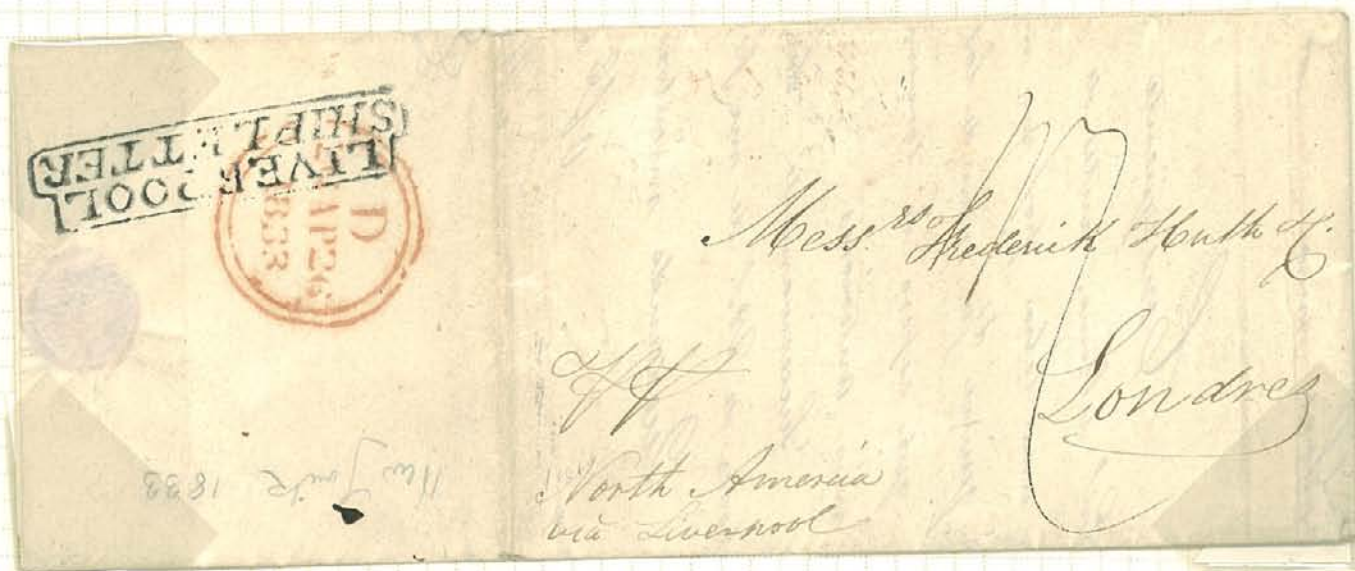 LIVERPOOL
SHIP LETTER
D
AP 26
1833
New York 1833
Mess.rs Frederick Huth &.
Londres
North America
via Liverpool